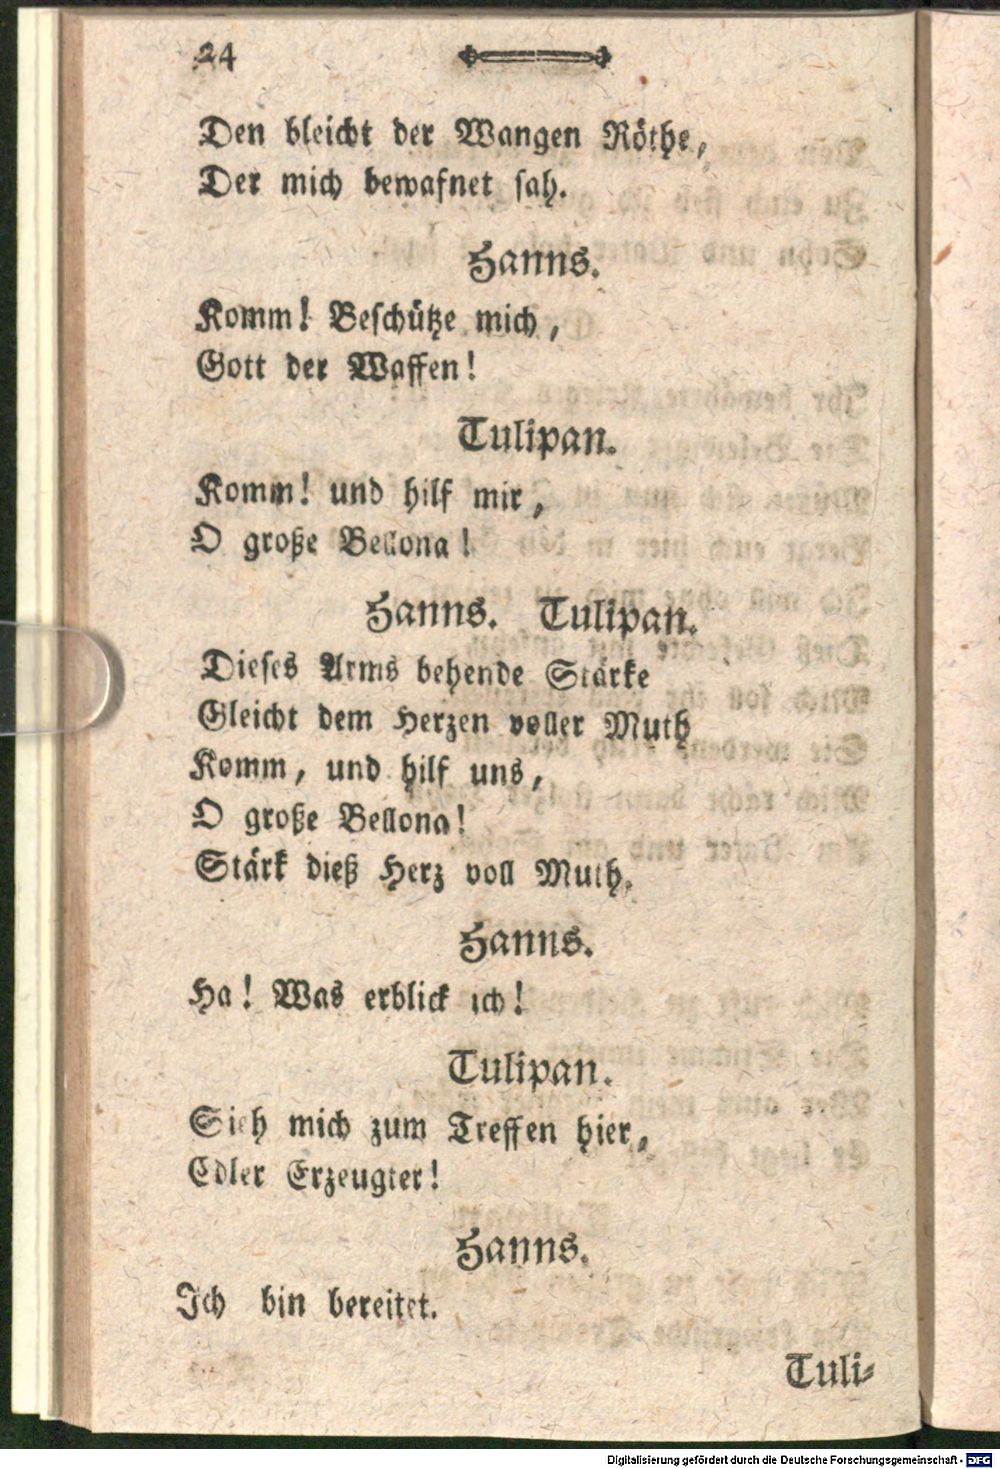 24
Den bleicht der Wangen Röthe,
Der mich bewafnet sah.
Hanns.
Komm! Beschütze mich,
Gott der Waffen!
Tulipan.
Komm! und hilf mir,
O große Bellona!
Hanns. Tulipan.
Dieses Arms behende Stärke
Gleicht dem Herzen voller Muth
Komm, und hilf uns,
O große Bellona!
Stärk dieß Herz voll Muth.
Hanns.
Ha! Was erblick ich!
Tulipan.
Sieh mich zum Treffen hier,
Edler Erzeugter!
Hanns.
Ich bin bereitet.
Tuli-
Digitalisierung gefördert durch die Deutsche Forschungsgemeinschaft - DFG